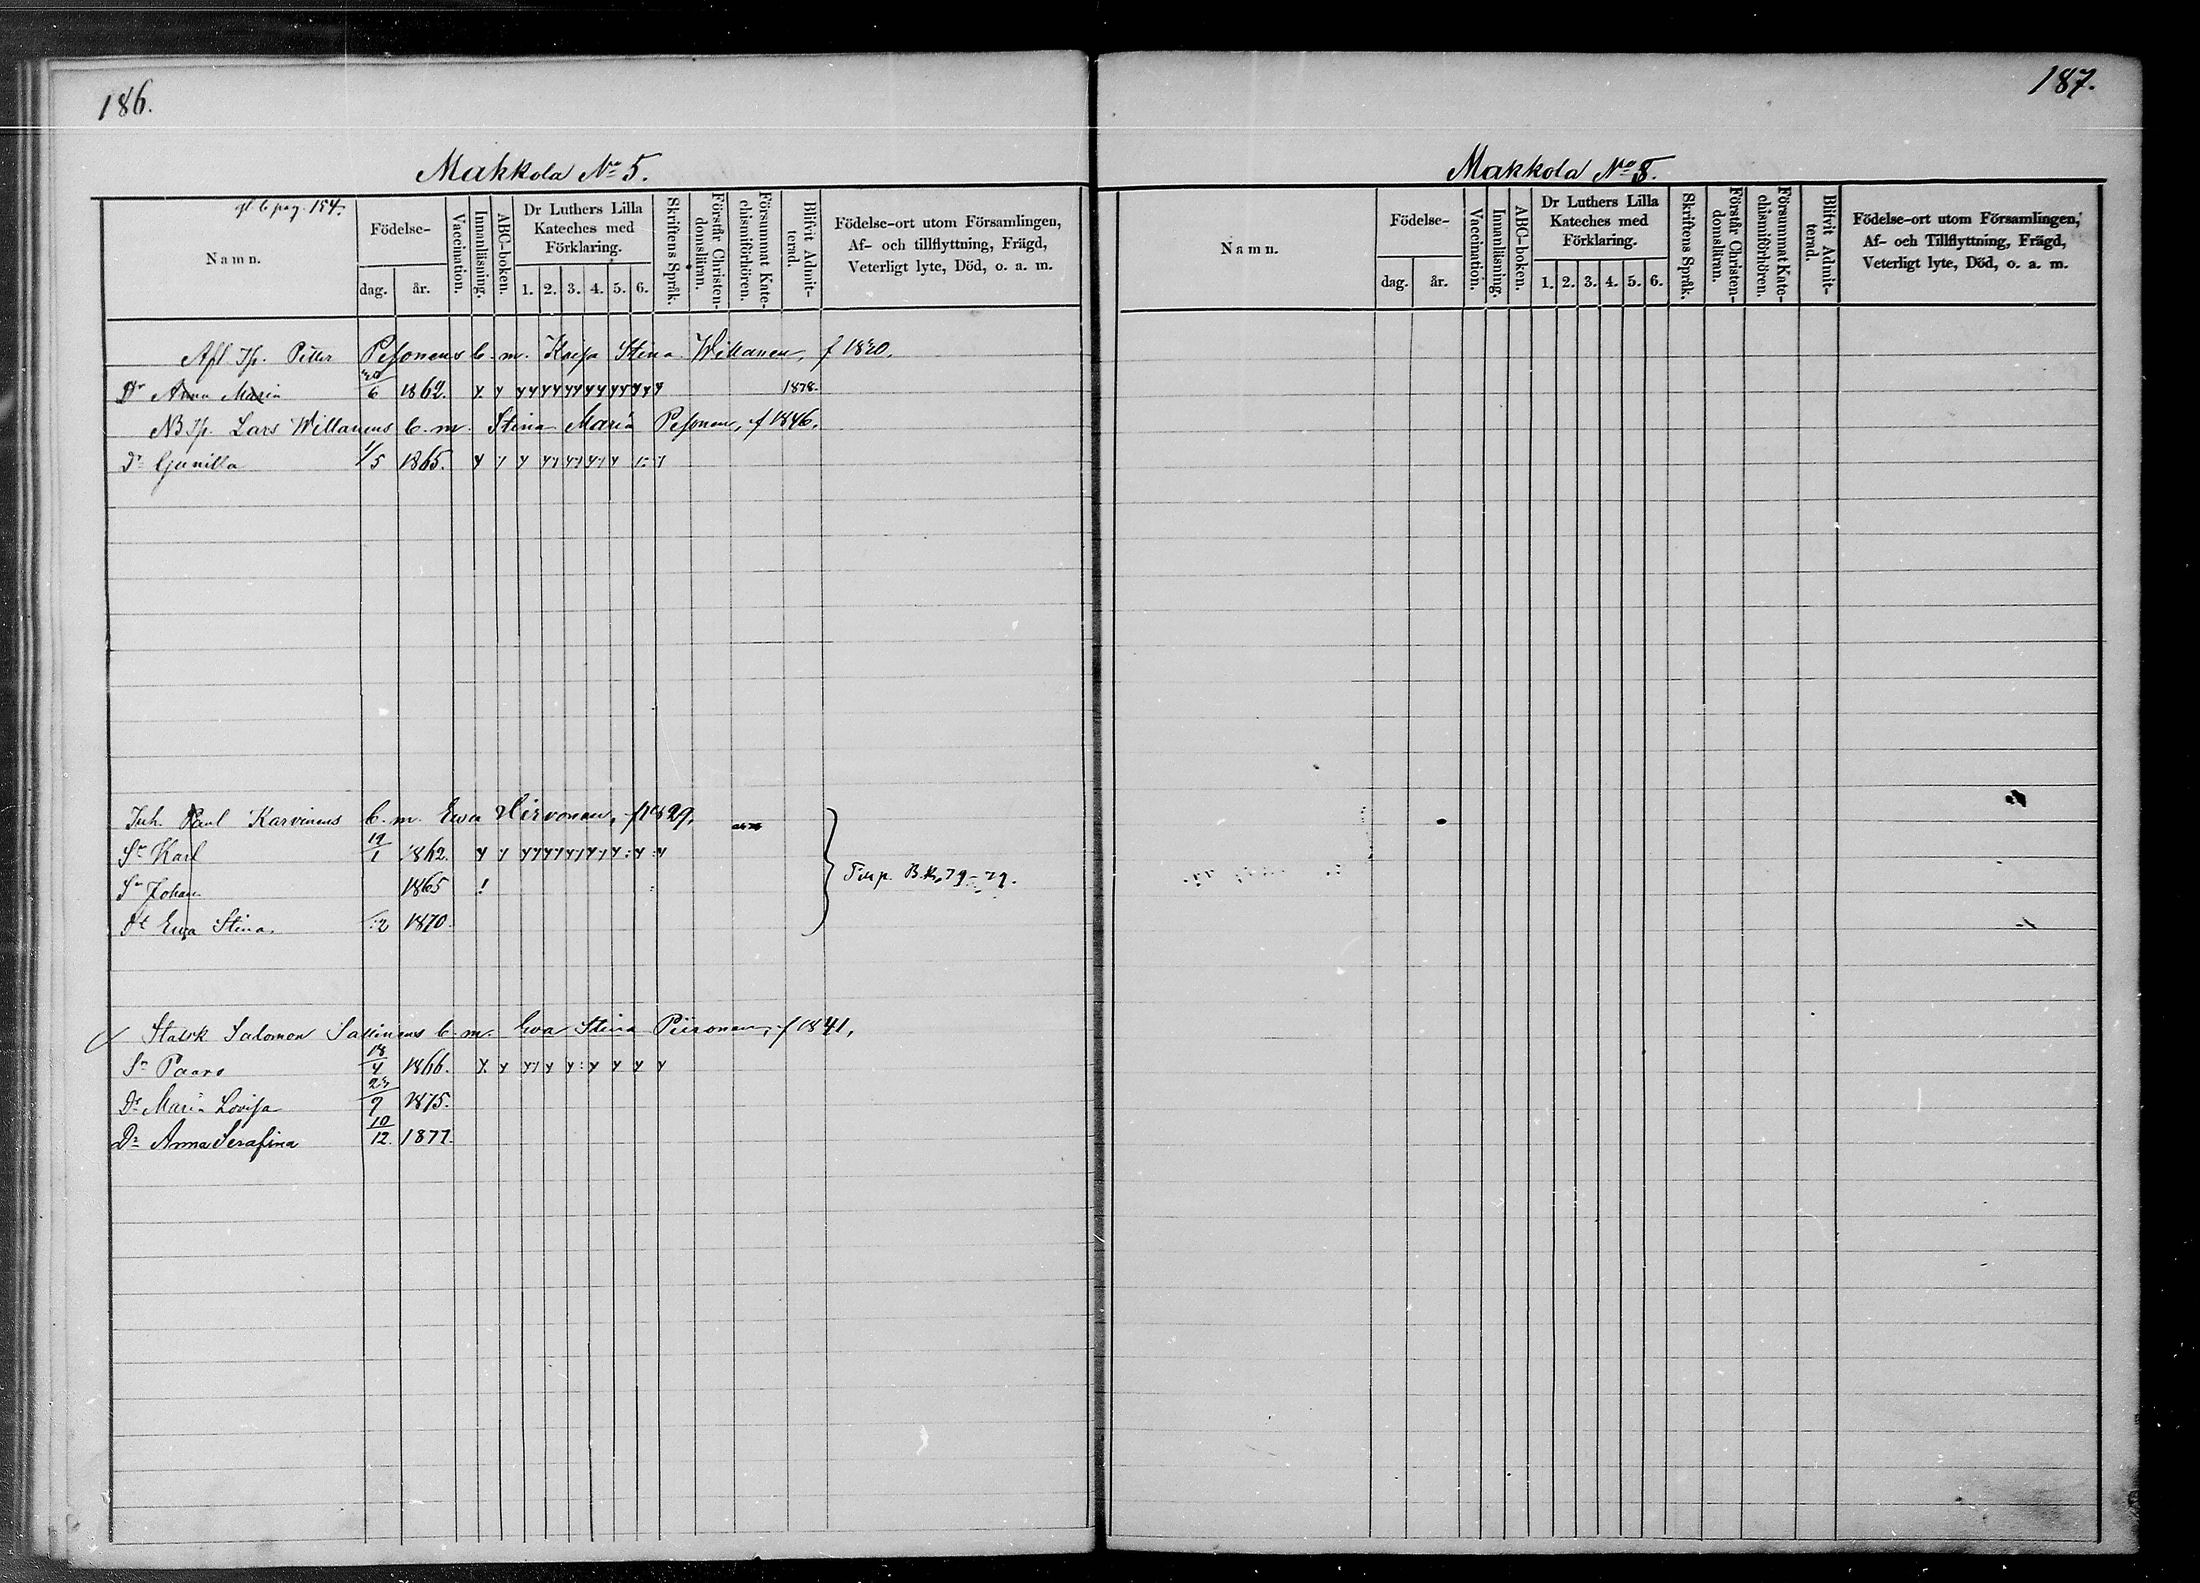 186.
Makkola No 5.
gl. b. pag. 154.
Namn.
Födelse-
dag.
år.
Vaccination.
Innanläsning.
ABC-boken.
Dr Luthers Lilla
Kateches med
Förklaring.
1. 2. 3. 4. 5. 6.
Skriftens Språk.
Förstår Christen-
domsläran.
Försummat Kate-
chismiförhören.
Blifvit Admit-
terad.
Födelse-ort utom Församlingen,
Af- och tillflyttning, Frägd,
Veterligt lyte, Död, o. a. m.
Afl. Petter Pesonens b. m. Kaisa Stina Willanen, f 1820.
Dr Anna Maria 6 1862. 1878.
NB Lars Willanens b. m. Stina Maria Pesonen, f 1846.
Dr Gunilla 1/5 1865.
Inh. Paul Karvinens b. m. Ewa Hirvonen, f 1829.
Sn Karl 19/1 1862.
Sn Johan 1865
Dt Ewa Stina. 2 1870.
B. K. 79-79.
Salomon Sallinens b. m. Ewa Stina Piironen, f 1841.
Sn Paavo 18/4 1866.
Dr Maria Lovisa 9 1875.
Dr Anna Serafina 10/12. 1877.
187.
Makkola No 8.
Namn.
Födelse-
dag.
år.
Vaccination.
Innanläsning.
ABC-boken.
Dr Luthers Lilla
Kateches med
Förklaring.
1. 2. 3. 4. 5. 6.
Skriftens Språk.
Förstår Christen-
domsläran.
Försummat Kate-
chismiförhören.
Blifvit Admit-
terad.
Födelse-ort utom Församlingen,
Af- och Tillflyttning, Frägd,
Veterligt lyte, Död, o. a. m.